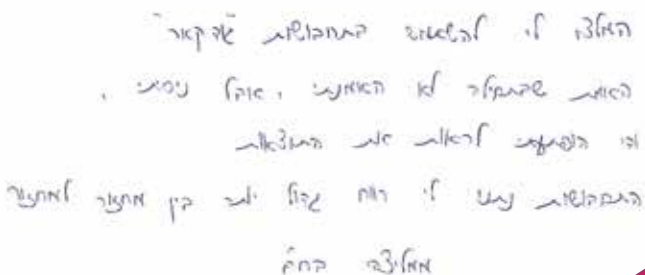 המלצו לי להשתמש בתחבושות "גד קאר"
האמת שבתחילה לא האמנתי, אבל ניסיתי,
והופתעתי לראות את התוצאות
התחבושות נתנו לי רווח גדול יותר בין מחזור למחזור
ממליצה בחום